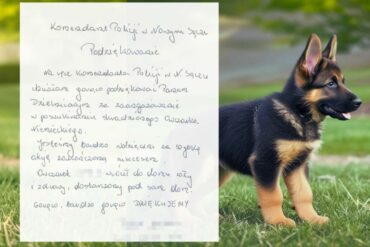 Komendant Policji w Nowym Sączu
Podziękowanie
Na ręce Komendanta Policji w N. Sączu
składam gorące podziękowania Panom
Dzielnicowym za zaangażowanie
w poszukiwaniu skradzionego Owczarka
Niemieckiego.
Jesteśmy bardzo wdzięczni za szybką
akcję zakończoną sukcesem.
Owczarek wrócił do domu cały
i zdrowy, dostarczony pod same drzwi.
Gorąco, bardzo gorąco DZIĘKUJEMY